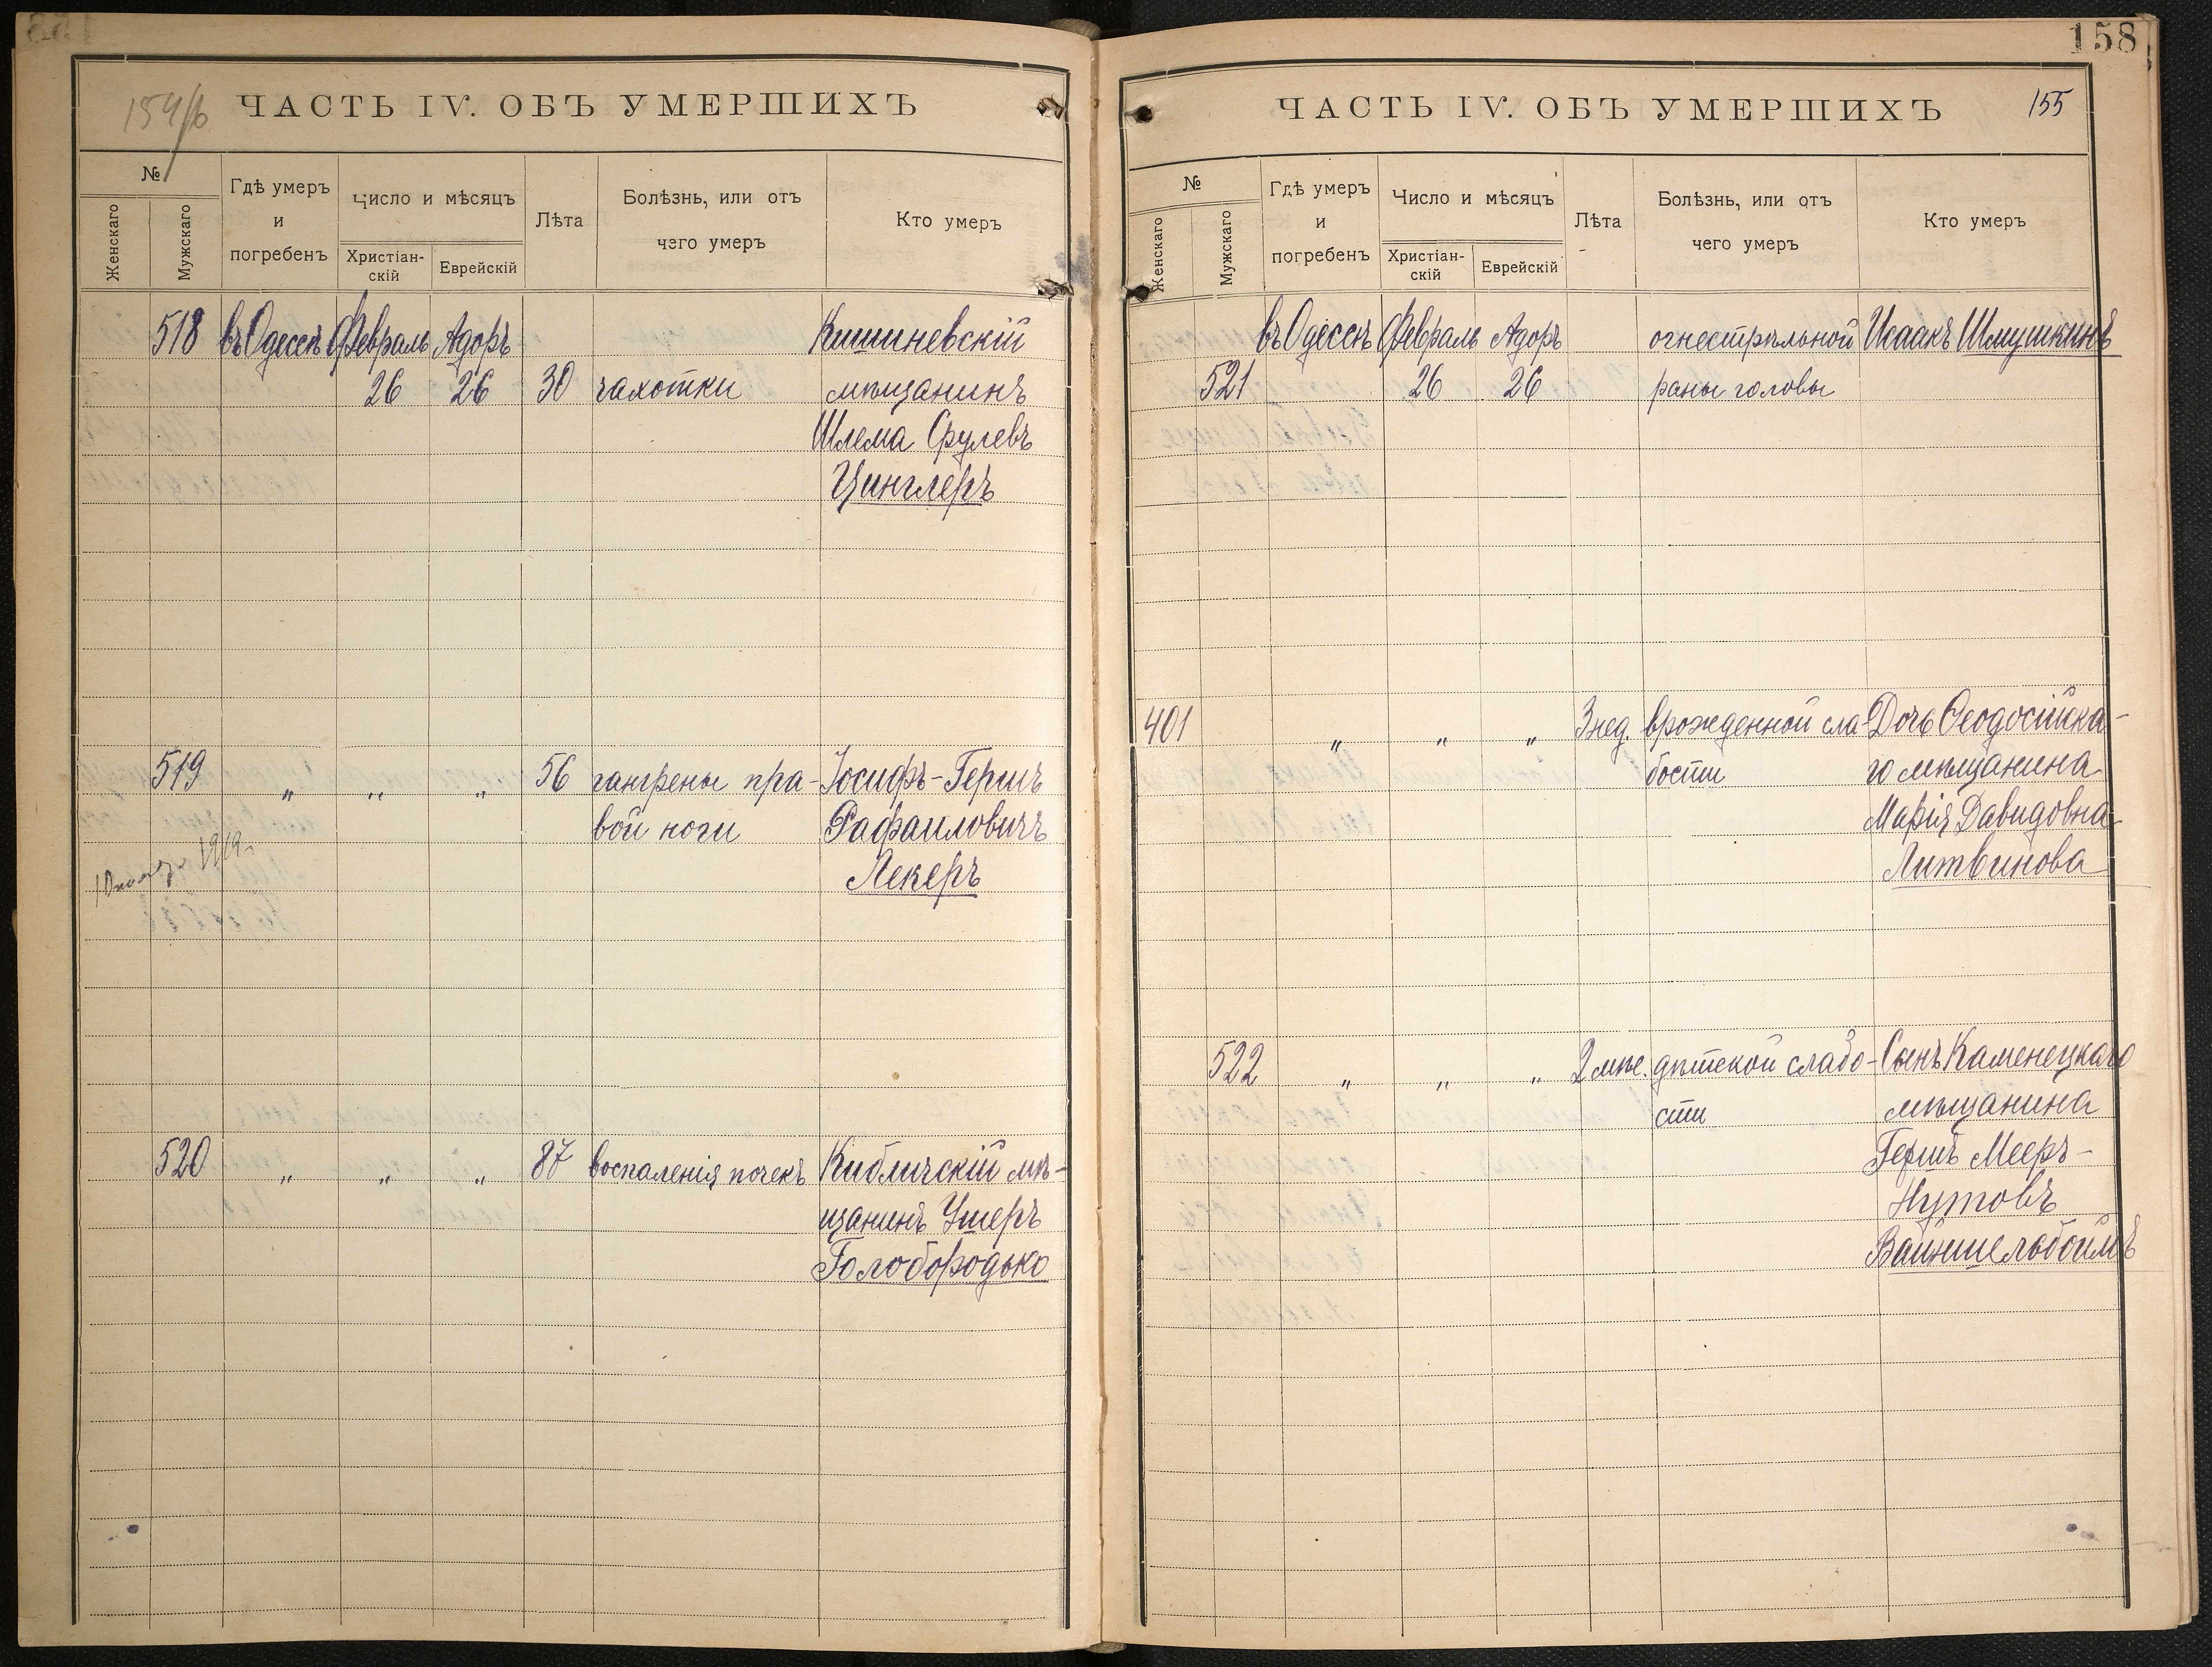 154/б ЧАСТЬ IV. ОБЪ УМЕРШИХЪ
№
Женскаго
Мужскаго
Гдѣ умеръ
и
погребенъ
Число и мѣсяцъ
Христіан-
скій
Еврейскій
Лѣта
Болѣзнь, или отъ
чего умеръ
Кто умеръ
518 въ Одессѣ Февраль Адоръ Кишиневскій
26 26 30 чахотки мѣщанинъ
Шлема Срулевъ
Цинглеръ
519 " " " 56 гангрены пра- Іосифъ-Гершъ
вой ноги Рафаиловичъ
1919
Лекеръ
520 " " " 87 воспаленія почекъ Кибличскій мѣ-
щанинъ Ушеръ
Голобородько
158
ЧАСТЬ IV. ОБЪ УМЕРШИХЪ 155
№
Женскаго
Мужскаго
Гдѣ умеръ
и
погребенъ
Число и мѣсяцъ
Христіан-
скій
Еврейскій
Лѣта
Болѣзнь, или отъ
чего умеръ
Кто умеръ
въ Одессѣ Февраль Адоръ огнестрѣльной Исаакъ Шмушкинъ
521 26 26 раны головы
401 " " " 3 нед. врожденной сла- Дочь Ѳеодосійска-
бости го мѣщанина
Марія Давидовна
Литвинова
522 " " " 2 мѣс. дѣтской слабо- Сынъ Каменецкаго
сти мѣщанина
Гершъ Мееръ-
Нутовъ
Вайншельбоймъ